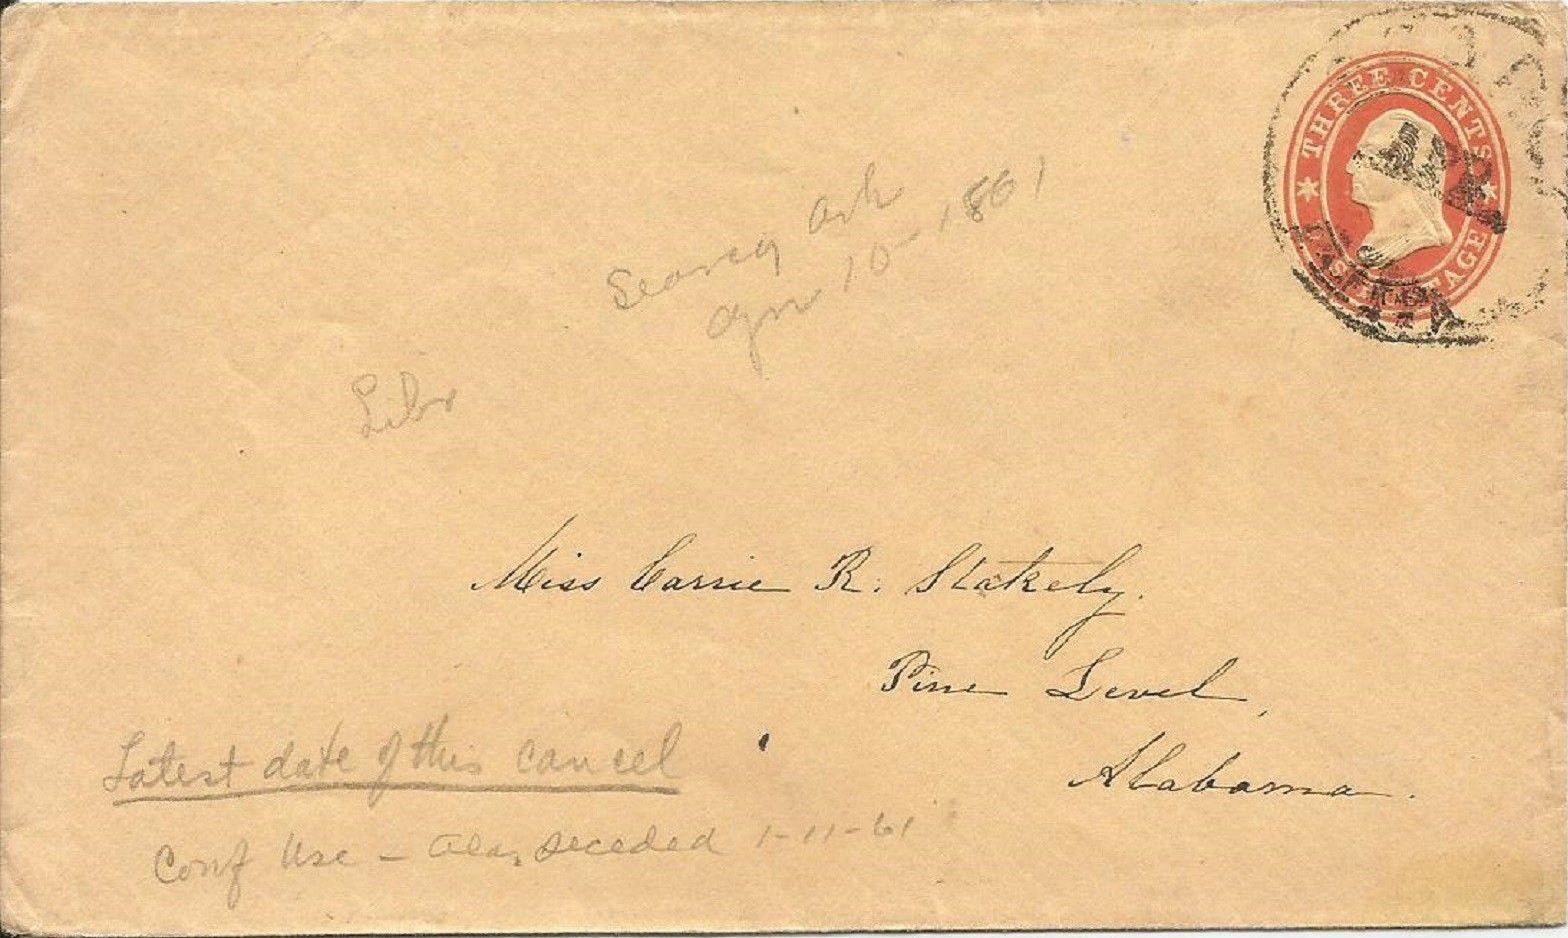 THREE CENTS
APR
Searcy Ark
Apr 10-1861
Libr
Miss Carrie R. Stakely.
Pine Level,
Alabama.
Latest date of this cancel
Conf Use - Ala, seceded 1-11-61